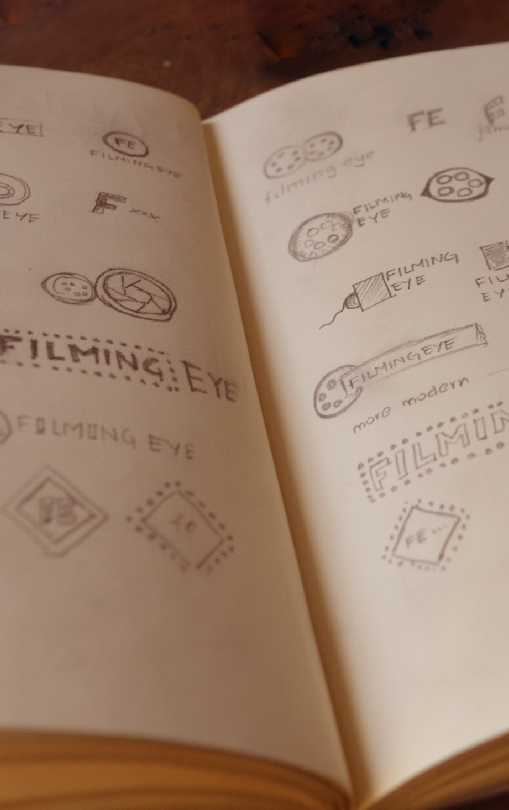 EYE
FE
FILMING EYE
EYE
F xxx
FILMING EYE
FILMING EYE
FE
FE
filming eye
FILMING
EYE
FILMING
EYE
FIL
EY
FILMING EYE
more modern
FILMIN
FE